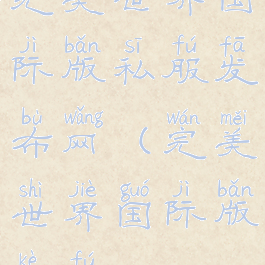 完美世界国
jì bǎn sī fú fā
际版私服发
bù wǎng wán měi
布网（完美
shì jiè guó jì bǎn
世界国际版
kè fú